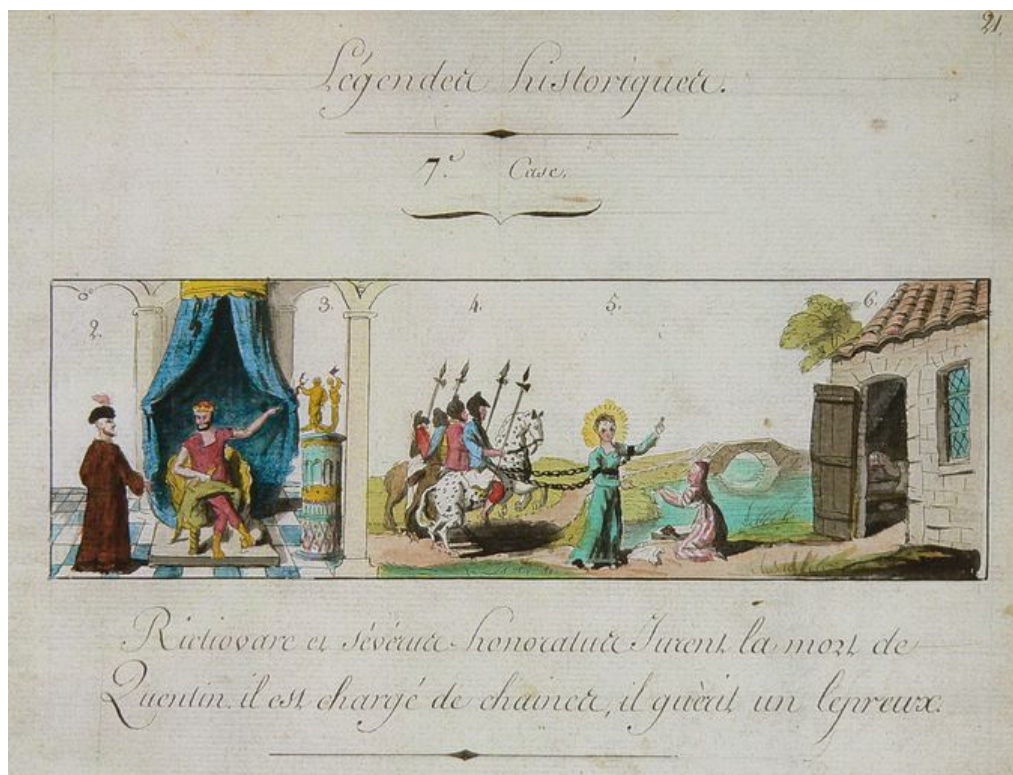 21.
Légendes historiques.
7.e Case.
2.
3.
4.
5.
6.
Rictiovare et sévérus honoratus Jurent la mort de
Quentin. il est chargé de chaines, il guèrit un lepreux.